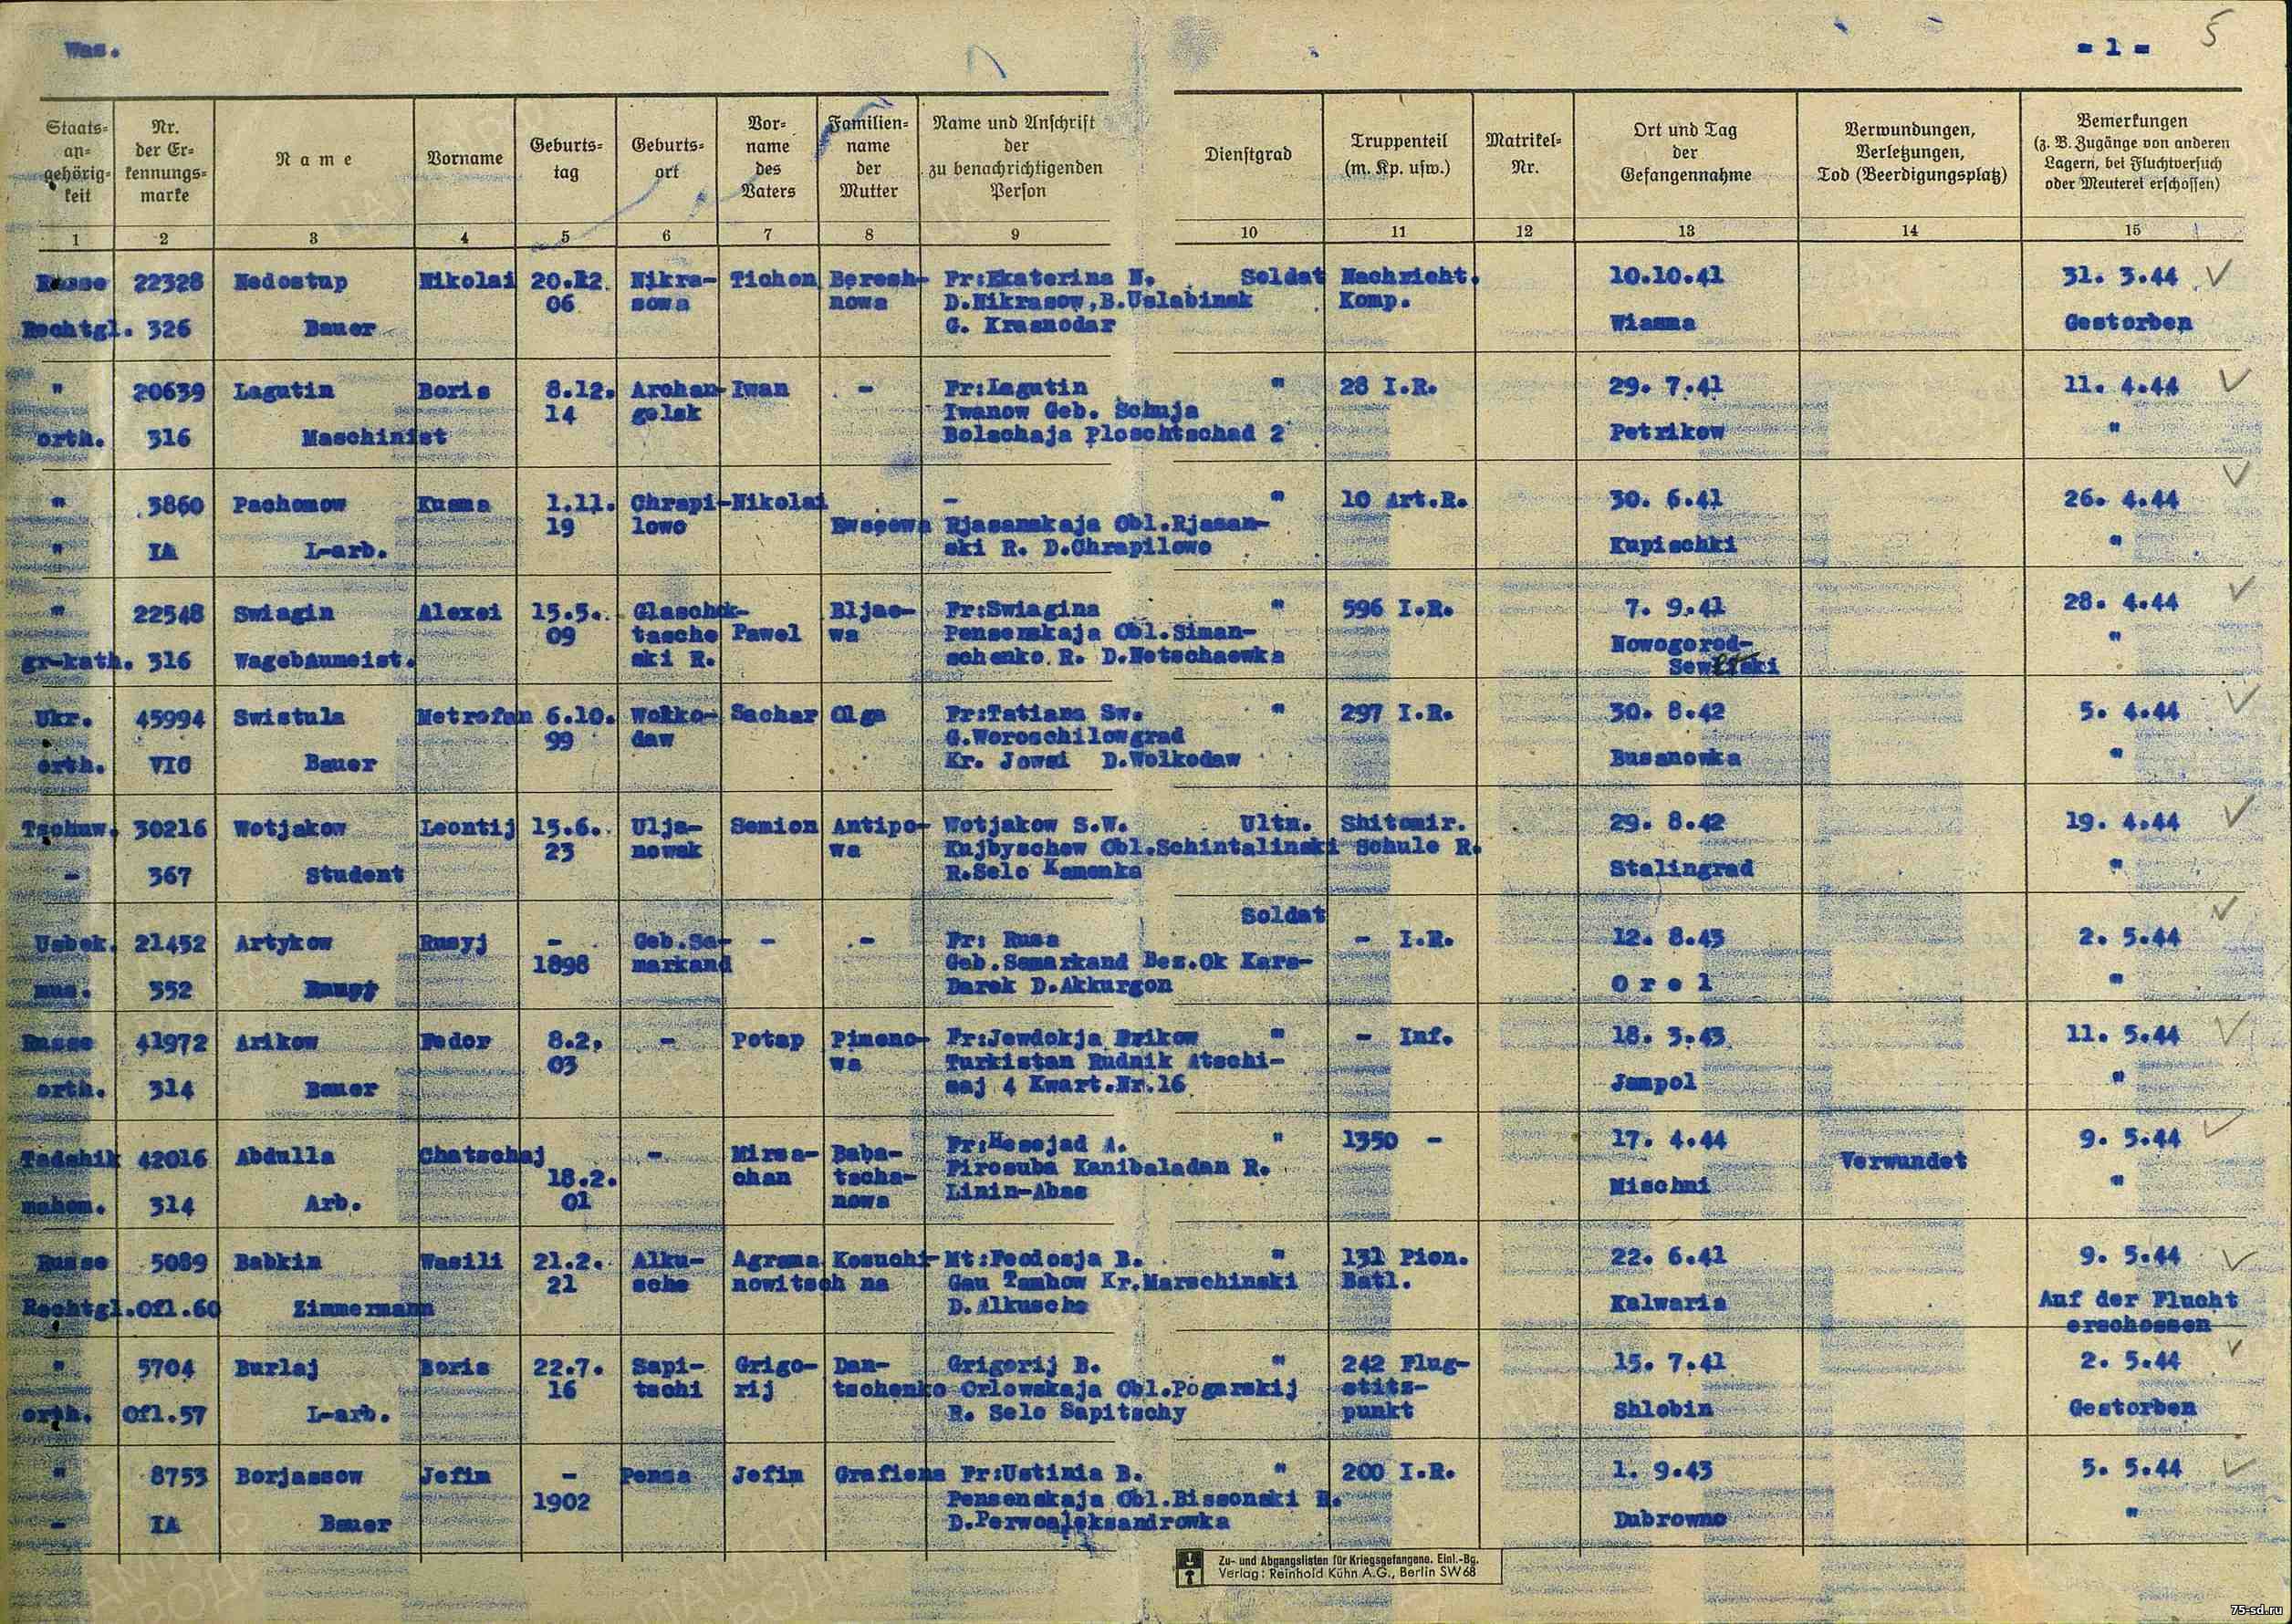 Was.
= 1 =
5
Staats=
an=
gehörig=
keit
Nr.
der Er=
kennungs=
marke
Name
Vorname
Geburts=
tag
Geburts=
ort
Vor=
name
des
Vaters
Familien=
name
der
Mutter
Name und Anschrift
der
zu benachrichtigenden
Person
Dienstgrad
Truppenteil
(m. Kp. usw.)
Matrikel=
Nr.
Ort und Tag
der
Gefangennahme
Verwundungen,
Verletzungen,
Tod (Beerdigungsplatz)
Bemerkungen
(z. B. Zugänge von anderen
Lagern, bei Fluchtversuch
oder Meuterei erschossen)
1 2 3 4 5 6 7 8 9 10 11 12 13 14 15
Russe 22328 Nedostup Nikolai 20.12. Nikra- Tichon Beresh- Fr:Ekaterina N. Soldat Nachricht. 10.10.41 31. 3.44
06 sowa nowa D.Nikrasow,B.Uslabinsk Komp.
Rechtgl. 326 Bauer G. Krasnodar Wiasma Gestorben
" 20639 Lagutin Boris 8.12. Archan- Iwan - Fr:Lagutin " 28 I.R. 29. 7.41 11. 4.44
14 gelsk Iwanow Geb. Schuja
orth. 316 Maschinist Bolschaja Ploschtschad 2 Petrikow "
" 3860 Pachomow Kusma 1.11. Chrapi- Nikolai - " 10 Art.R. 30. 6.41 26. 4.44
19 lowo Rjasanskaja Obl.Rjasan-
" IA L-arb. ski R. D.Chrapilowo Kupischki "
" 22548 Swiagin Alexei 15.5. Bljac- Fr:Swiagina " 596 I.R. 7. 9.41 28. 4.44
09 tasche Pawel wa Pensenskaja Obl.Siman-
gr-kath. 316 Wagebäumeist. ski R. schenko R. D.Netschaewka Nowogorod-
Sewerski "
Ukr. 45994 Swistula Metrofan 6.10. Wolko- Sachar Olga Fr:Tatiana Sw. " 297 I.R. 30. 8.42 5. 4.44
99 daw G.Woroschilowgrad
orth. VIC Bauer Kr. Jowsi D.Wolkodaw Busanowka "
Tschuw. 30216 Wotjakow Leontij 15.6. Ulja- Semion Antipo- Wotjakow S.W. Ultn. Shitomir. 29. 8.42 19. 4.44
23 nowsk wa Kujbyschew Obl.Schintalinski Schule R.
- 367 Student R.Selo Kamenka Stalingrad "
Soldat
Usbek. 21452 Artykow Rusyj - Geb.Sa- - - Fr: Rusa - I.R. 12. 8.43 2. 5.44
1898 markand Geb.Samarkand Bez.Ok Kara-
mus. 352 Darek D.Akkurgon Orel "
Russe 41972 Arikow Fedor 8.2. - Potap Pimono- Fr:Jewdokja " - Inf. 18. 3.43 11. 5.44
03 wa Turkistan Rudnik Atschi-
orth. 314 Bauer saj 4 Kwart.Nr.16 Jampol "
Tadshik 42016 Abdulla Chatschaj - Mirsa- Baba- Fr:Hesojad A. " 1350 - 17. 4.44 Verwundet 9. 5.44
18.2. chan tscha- Pirosuba Kanibaladan R.
mahom. 314 Arb. 01 nowa Linin-Abas Mischni "
Russe 5089 Babkin Wasili 21.2. Alku- Agrama Kosuchi- Mt:Feodosja B. " 131 Pion. 22. 6.41 9. 5.44
21 scha nowitsch na Gau Tambow Kr.Marschinski Batl.
Rechtgl. Ofl.60 Zimmermann D.Alkuscha Kalwaria Auf der Flucht
erschossen
" 5704 Burlaj Boris 22.7. Sapi- Grigo- Dan- Grigorij B. " 242 Flug- 15. 7.41 2. 5.44
16 tschi rij tschenko Orlowskaja Obl.Pogarskij stütz-
orth. Ofl.57 L-arb. R. Selo Sapitschy punkt Shlobin Gestorben
" 8753 Borjassow Jefim - Pensa Jefim Grafiena Fr:Ustinia B. " 200 I.R. 1. 9.43 5. 5.44
1902 Pensenskaja Obl.Bissonski R.
- IA Bauer D.Perwoaleksandrowka Dubrowno "
Zu- und Abgangslisten für Kriegsgefangene. Einl.-Bg.
Verlag: Reinhold Kühn A.G., Berlin SW 68
75-sd.ru